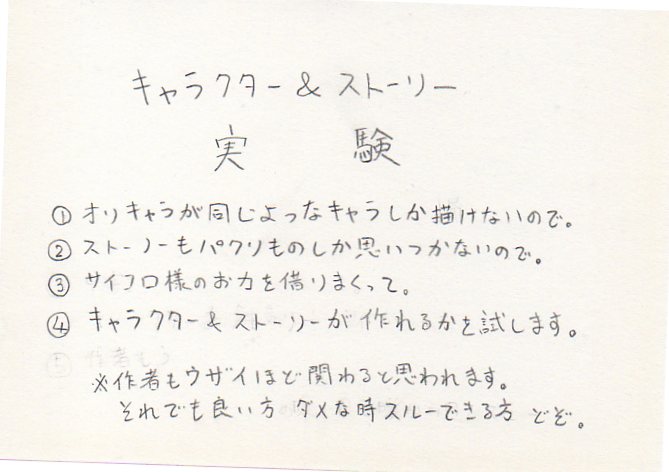 キャラクター & ストーリー
実験
① オリキャラが同じよっなキャラしか描けないので。
② ストーリーもパクリものしか思いつかないので。
③ サイコロ様のお力を借りまくって。
④ キャラクター & ストーリーが作れるかを試します。
※作者もウザイほど関わると思われます。
それでも良い方 ダメな時スルーできる方 どぞ。